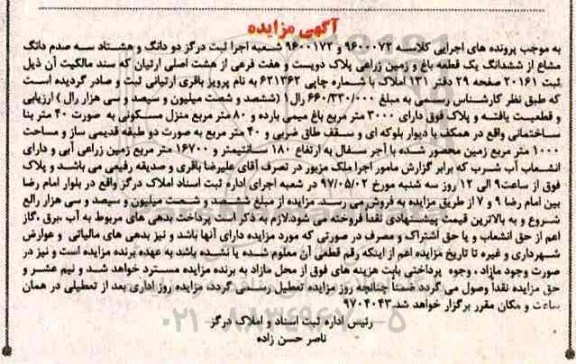 آگهی مزایده
به موجب پرونده های اجرایی کلاسه ۹۶۰۰۰۷۳ و ۹۶۰۰۱۷۲ شعبه اجرا ثبت درگز دو دانگ و هشتاد سه صدم دانگ
مشاع از ششدانگ یک قطعه باغ و زمین زراعی پلاک دویست و هفت فرعی از هشت اصلی ارتیان که سند مالکیت آن ذیل
ثبت ۲۰۱۶۱ صفحه ۲۹ دفتر ۱۳۱ املاک با شماره چاپی ۶۲۱۳۶۲ به نام پرویز باقری ارتیانی ثبت و صادر گردیده است
که طبق نظر کارشناس رسمی به مبلغ ۶۶۰/۳۳۰/۰۰۰ ریال (ششصد و شصت میلیون و سیصد و سی هزار ریال) ارزیابی
و قطعیت یافته و پلاک فوق دارای ۳۰۰۰ متر مربع باغ میمی بارده و ۸۰ متر مربع منزل مسکونی به صورت ۴۰ متر بنا
ساختمانی واقع در همکف با دیوار بلوکه ای و سقف طاق ضربی و ۴۰ متر مربع به صورت دو طبقه قدیمی ساز و مساحت
۱۰۰۰ متر مربع زمین محصور شده با آجر سفال به ارتفاع ۱۸۰ سانتیمتر و ۱۶۷۰۰ متر مربع زمین زراعی آبی و دارای
انشعاب آب شرب که برابر گزارش مامور اجرا ملک مزبور در تصرف آقای علیرضا باقری و صدیقه رفیعی می باشد و پلاک
فوق از ساعت۹ الی ۱۲ روز سه شنبه مورخ ۹۷/۰۵/۰۲ در شعبه اجرای اداره ثبت اسناد املاک درگز واقع در بلوار امام رضا
بین امام رضا ۹ و ۷ از طریق مزایده به فروش می رسد. مزایده از مبلغ ششصد و شصت میلیون و سیصد و سی هزار رالع
شروع و به بالاترین قیمت پیشنهادی نقداً فروخته می شود.لازم به ذکر است پرداخت بدهی های مربوط به آب ،برق ،گاز
اعم از حق انشعاب و یا حق اشتراک و مصرف در صورتی که مورد مزایده دارای آنها باشد و نیز بدهی های مالیاتی و عوارض
شهرداری و غیره تا تاریخ مزایده اعم از اینکه رقم قطعی آن معلوم شده یا نشده باشد به عهده برنده مزایده است و نیز در
صورت وجود مازاد ، وجوه پرداختی بابت هزینه های فوق از محل مازاد به برنده مزایده مسترد خواهد شد و نیم عشر و
حق مزایده نقداً وصول می گردد ضمناً چنانچه روز مزایده تعطیل رسمی گردد، مزایده روز اداری بعد از تعطیلی در همان
ساعت و مکان مقرر برگزار خواهد شد.۹۷۰۴۰۴۳
رئیس اداره ثبت اسناد و املاک درگز
ناصر حسن زاده
۰۲۱-۸۸۳۴۹۶۷۰-۵